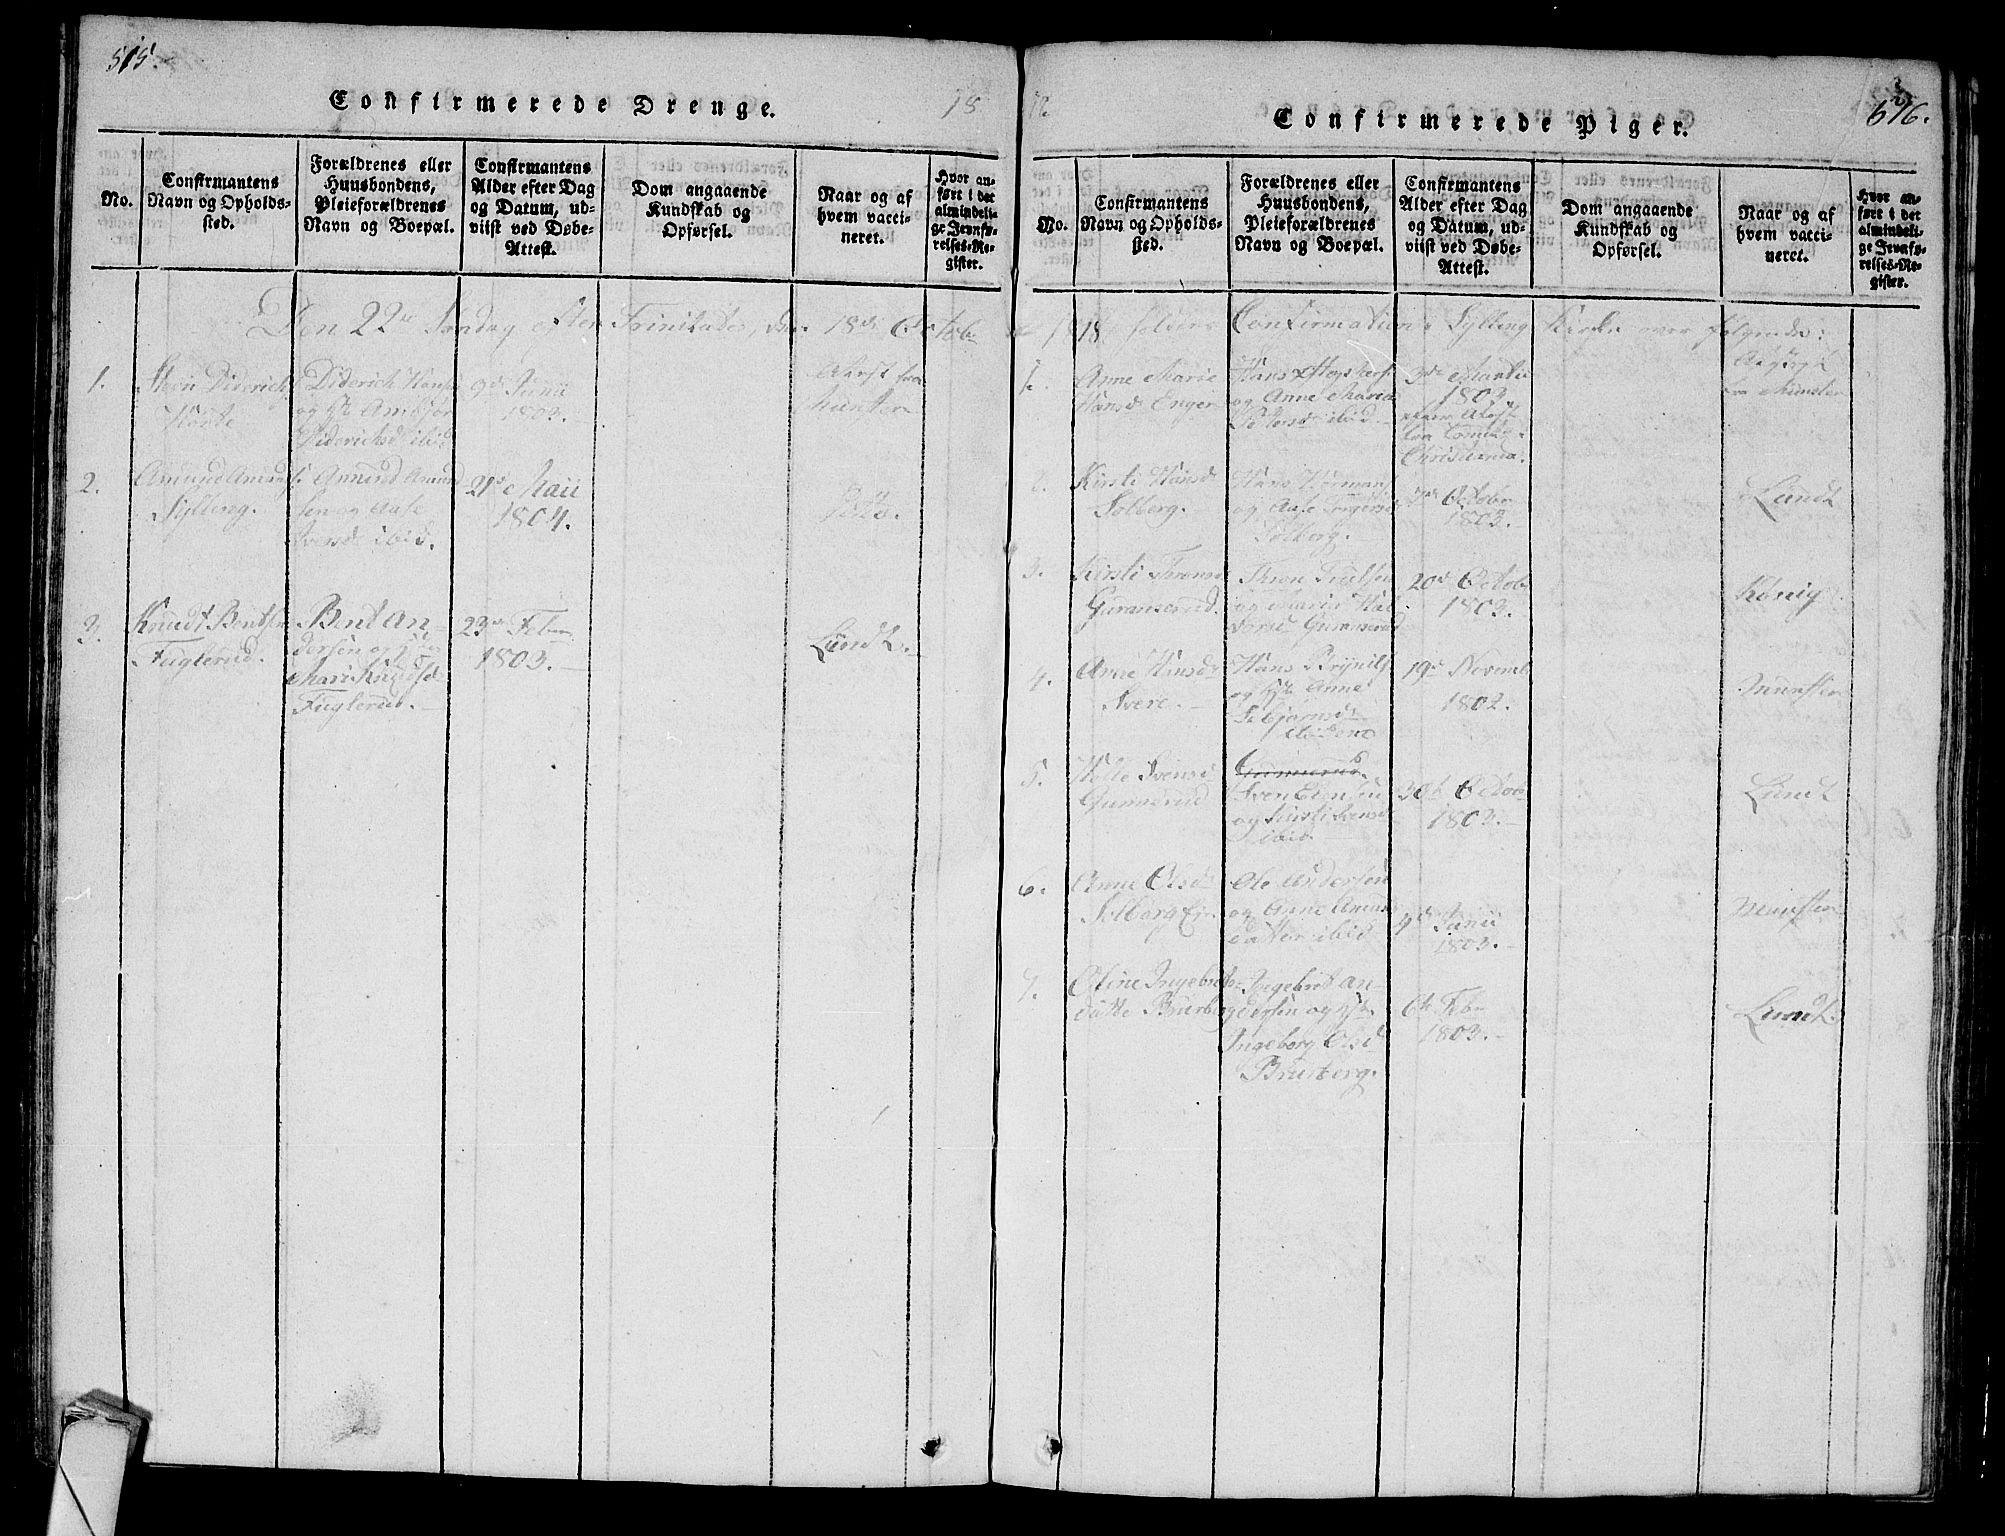 515.
Confirmerede Drenge.
18
No.
Confirmantens
Navn og Opholds-
sted.
Forældrenes eller
Huusbondens,
Pleieforældrenes
Navn og Boepæl.
Confirmantens
Alder efter Dag
og Datum, ud-
viist ved Døbe-
Attest.
Dom angaaende
Kundskab og
Opførsel.
Naar og af
hvem vacci-
neret.
Hvor an-
ført i det
almindeli-
ge Jevnfø-
relses-Re-
gister.
Den 22de Søndag efter Trinitatis, den 18de Octob
1.
Diderich
Diderich Hans
og
Diderichsd ibid
9de Junii
1803.
Attest fra
Munster
2.
Amund Amunds
Sylling.
Amund Amund
sen og Aase
Iversd ibid.
21de Maii
1804.
3.
Knudt Bentsen
Fuglerud.
Bent An-
dersen og
Mari Knudsd
Fuglerud.
23de Febr
1803.
Lundt.
Confirmerede Piger.
676.
No.
Confirmantens
Navn og Opholds-
sted.
Forældrenes eller
Huusbondens,
Pleieforældrenes
Navn og Boepæl.
Confirmantens
Alder efter Dag
og Datum, ud-
viist ved Døbe-
Attest.
Dom angaaende
Kundskab og
Opførsel.
Naar og af
hvem vacci-
neret.
Hvor an-
ført i det
almindeli-
ge Jevnfø-
relses-Re-
gister.
1818 holdes Confirmation i Sylling Kirke over følgende:
1.
Anne Marie
Hansd Enger
Hans
og Anne Maria
Petersd ibid.
3de Martii
1803.
Attest
fra
Christiania.
fra Munster
2.
Kirsti Hansd
Solberg.
Hans
og Aase
Solberg.
October
1803.
Lundt
3.
Kirsti Thronsd
Gunnerud.
Thron Truelsen
og Maria Hal
vorsd Gunnerud
20de Octobr
1803.
König
4.
Anne Hansd
Svere.
Hans Brynils
og Anne
Thbjørnsd
ibidem
19de Novemb
1802.
Munster
5.
Helle Svensd
Gunnerud
Gunnerud.
Sven Evensen
og Kirsti Svensd
ibid.
30te Octob
1803.
Lundt
6.
Anne Olsd
Solberg Eje
Ole Andersen
og Anne Amunds
datter ibid
4de Junii
1803.
Munster
7.
Oline Ingebrets-
datte Bruberg
Ingebret An-
dersen og
Ingeborg Olsd
Bruberg.
6te Febr
1803.
Lundt.